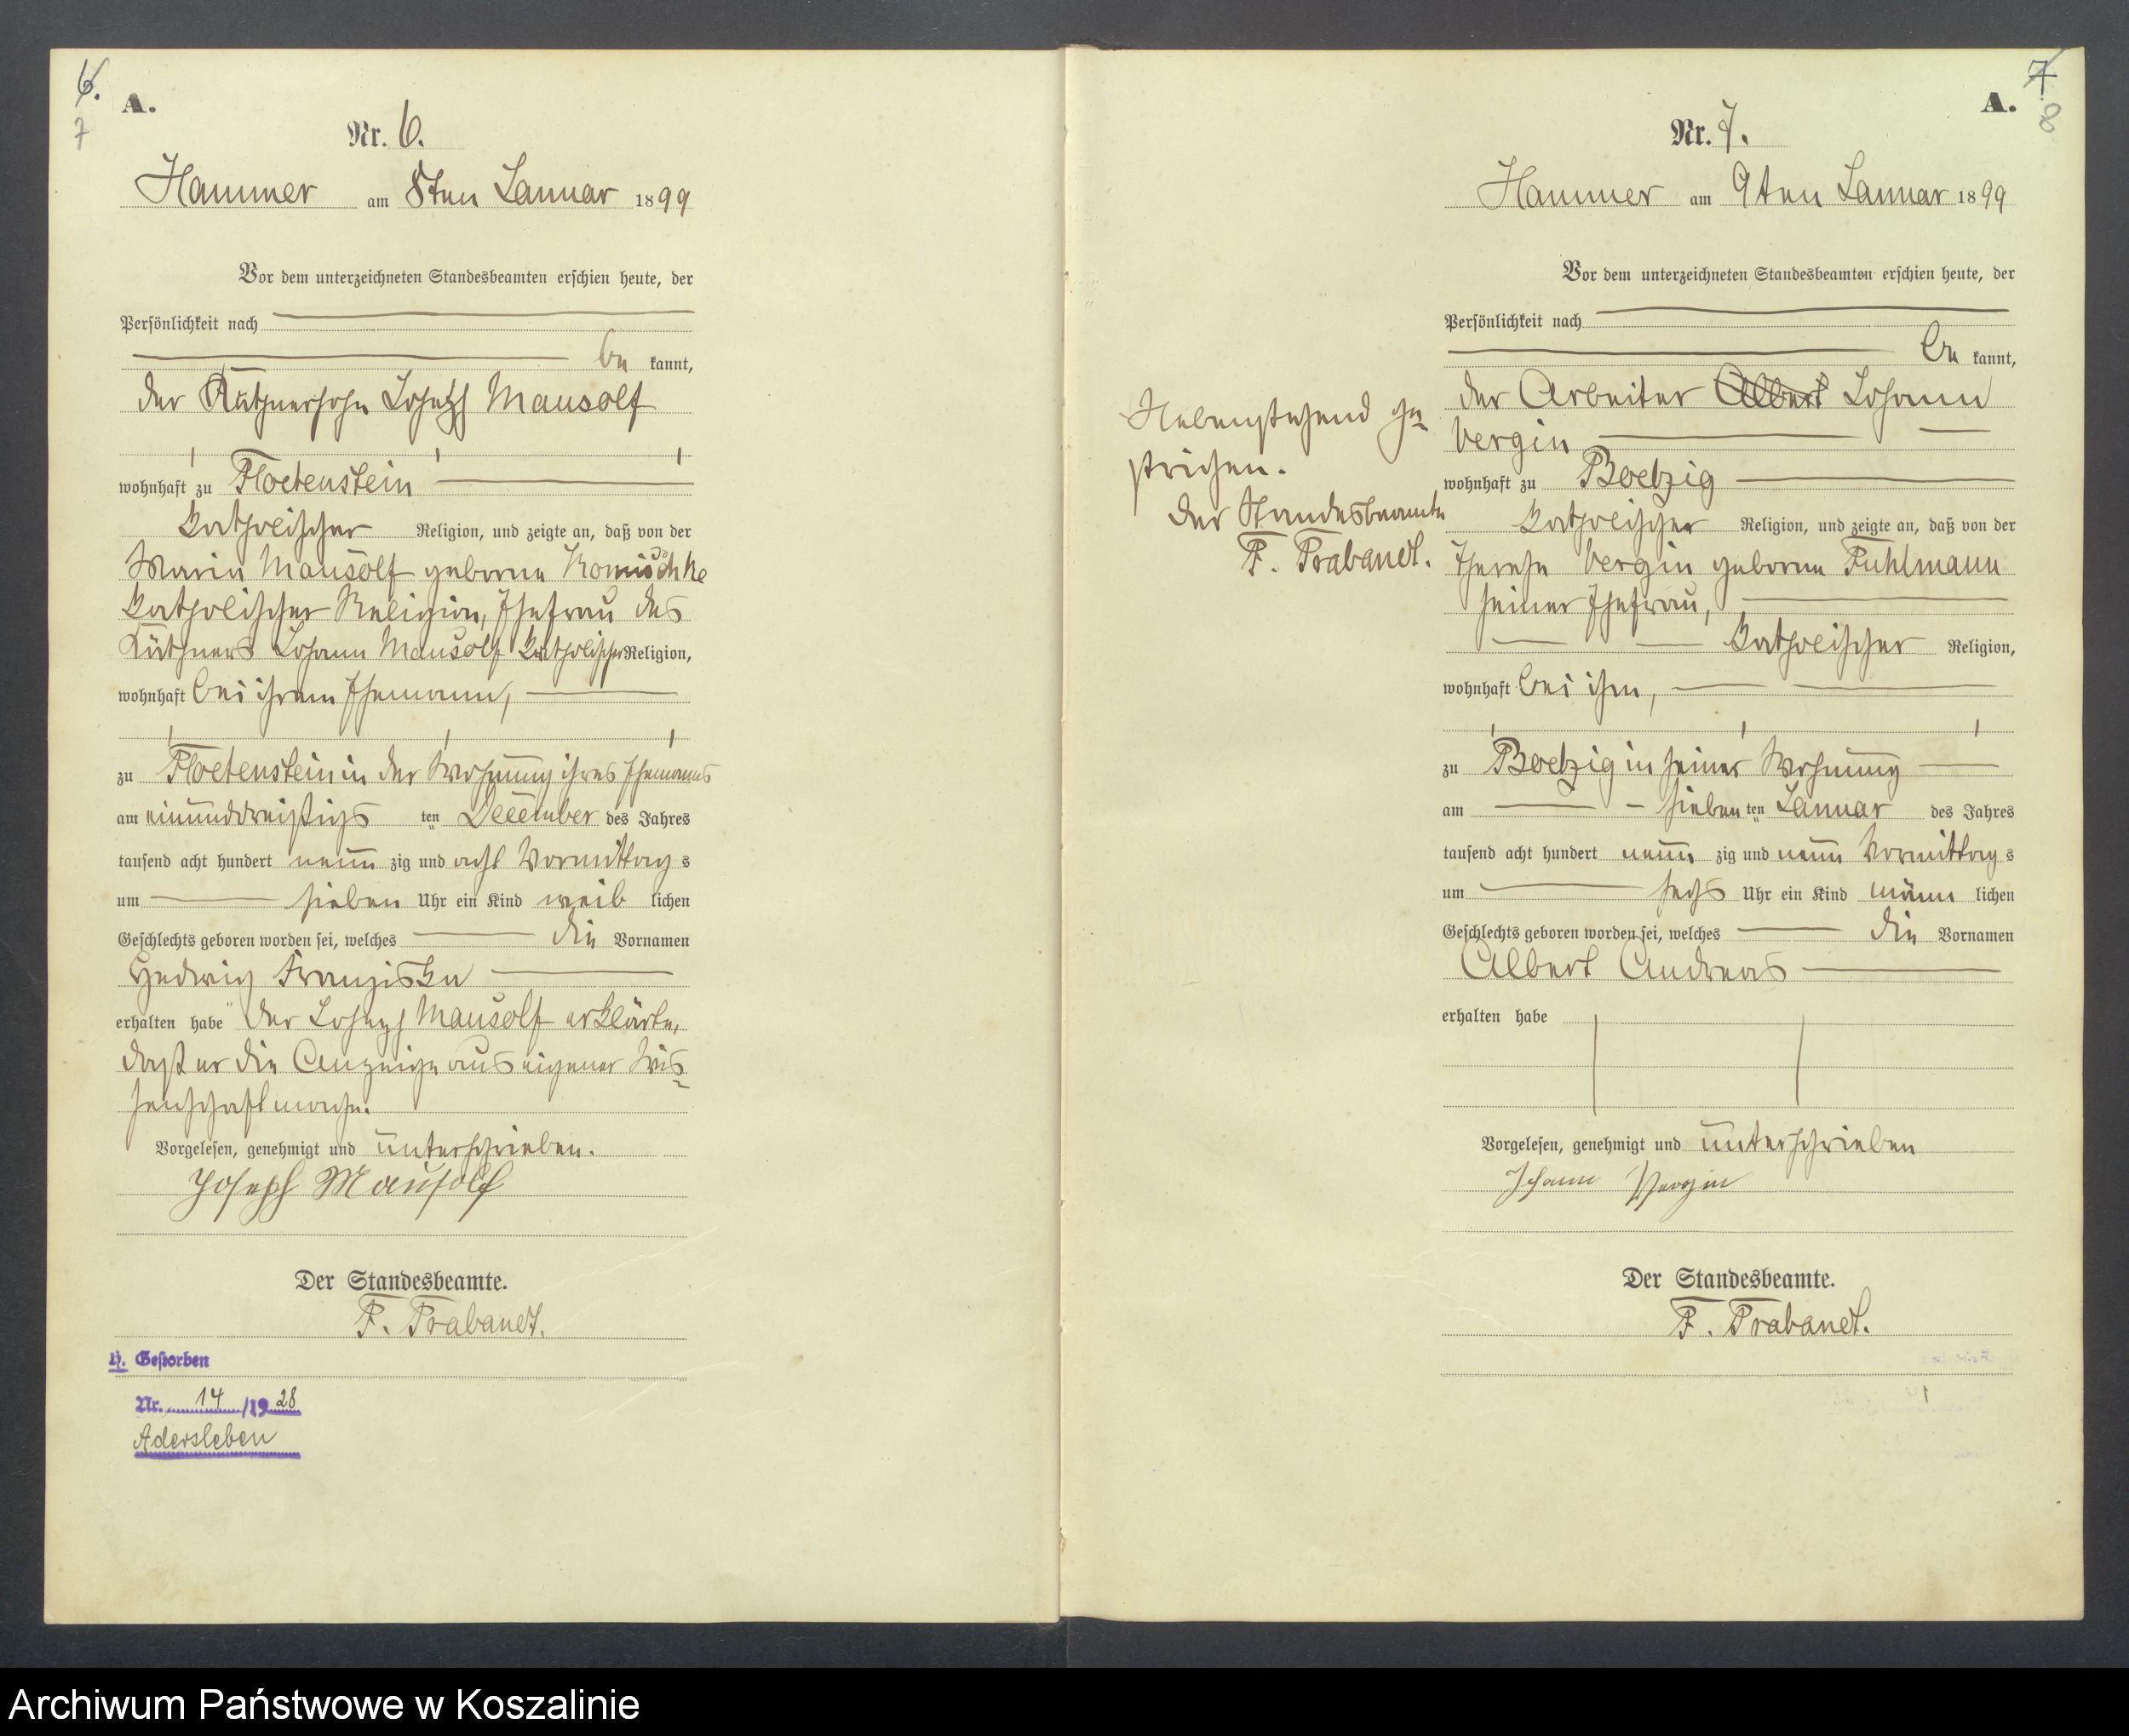 6.
7
A.
Nr. 6.
Hammer am 8ten Januar 1899
Vor dem unterzeichneten Standesbeamten erschien heute, der
Persönlichkeit nach
be kannt,
der Käthnersohn Joseph Mausolf
wohnhaft zu Floetenstein
katholischer Religion, und zeigte an, daß von der
Maria Mausolf geborene
katholischer Religion, Ehefrau des
Käthners Johann Mausolf katholischer Religion,
wohnhaft bei ihrem Ehemann,
zu Floetenstein in der Wohnung ihres Ehemanns
am einunddreißigs ten December des Jahres
tausend acht hundert neun zig und acht Vormittag s
um sieben Uhr ein Kind weib lichen
Geschlechts geboren worden sei, welches die Vornamen
Hedwig Franziska
erhalten habe der Joseph Mausolf erklärte,
daß er die Anzeige aus eigener Wis=
senschaft mache.
Vorgelesen, genehmigt und unterschrieben.
Joseph Mausolf
Der Standesbeamte.
F. Prabandt.
H. Gestorben
Nr. 14 /19 28
Adersleben
7
8
A.
Nr. 7.
Hammer am 9ten Januar 1899
Vor dem unterzeichneten Standesbeamten erschien heute, der
Persönlichkeit nach
be kannt,
der Arbeiter Albert Johann
Vergin
wohnhaft zu Boetzig
katholischer Religion, und zeigte an, daß von der
Therese Vergin geborene Fuhlmann
seiner Ehefrau,
katholischer Religion,
wohnhaft bei ihm,
zu Boetzig in seiner Wohnung
am sieben ten Januar des Jahres
tausend acht hundert neun zig und neun Vormittag s
um sechs Uhr ein Kind männ lichen
Geschlechts geboren worden sei, welches die Vornamen
Albert Andreas
erhalten habe
Vorgelesen, genehmigt und unterschrieben
Johann Vergin
Der Standesbeamte.
F. Prabandt.
Nebenstehend ge=
strichen.
Der Standesbeamte
F. Prabandt.
Archiwum Państwowe w Koszalinie